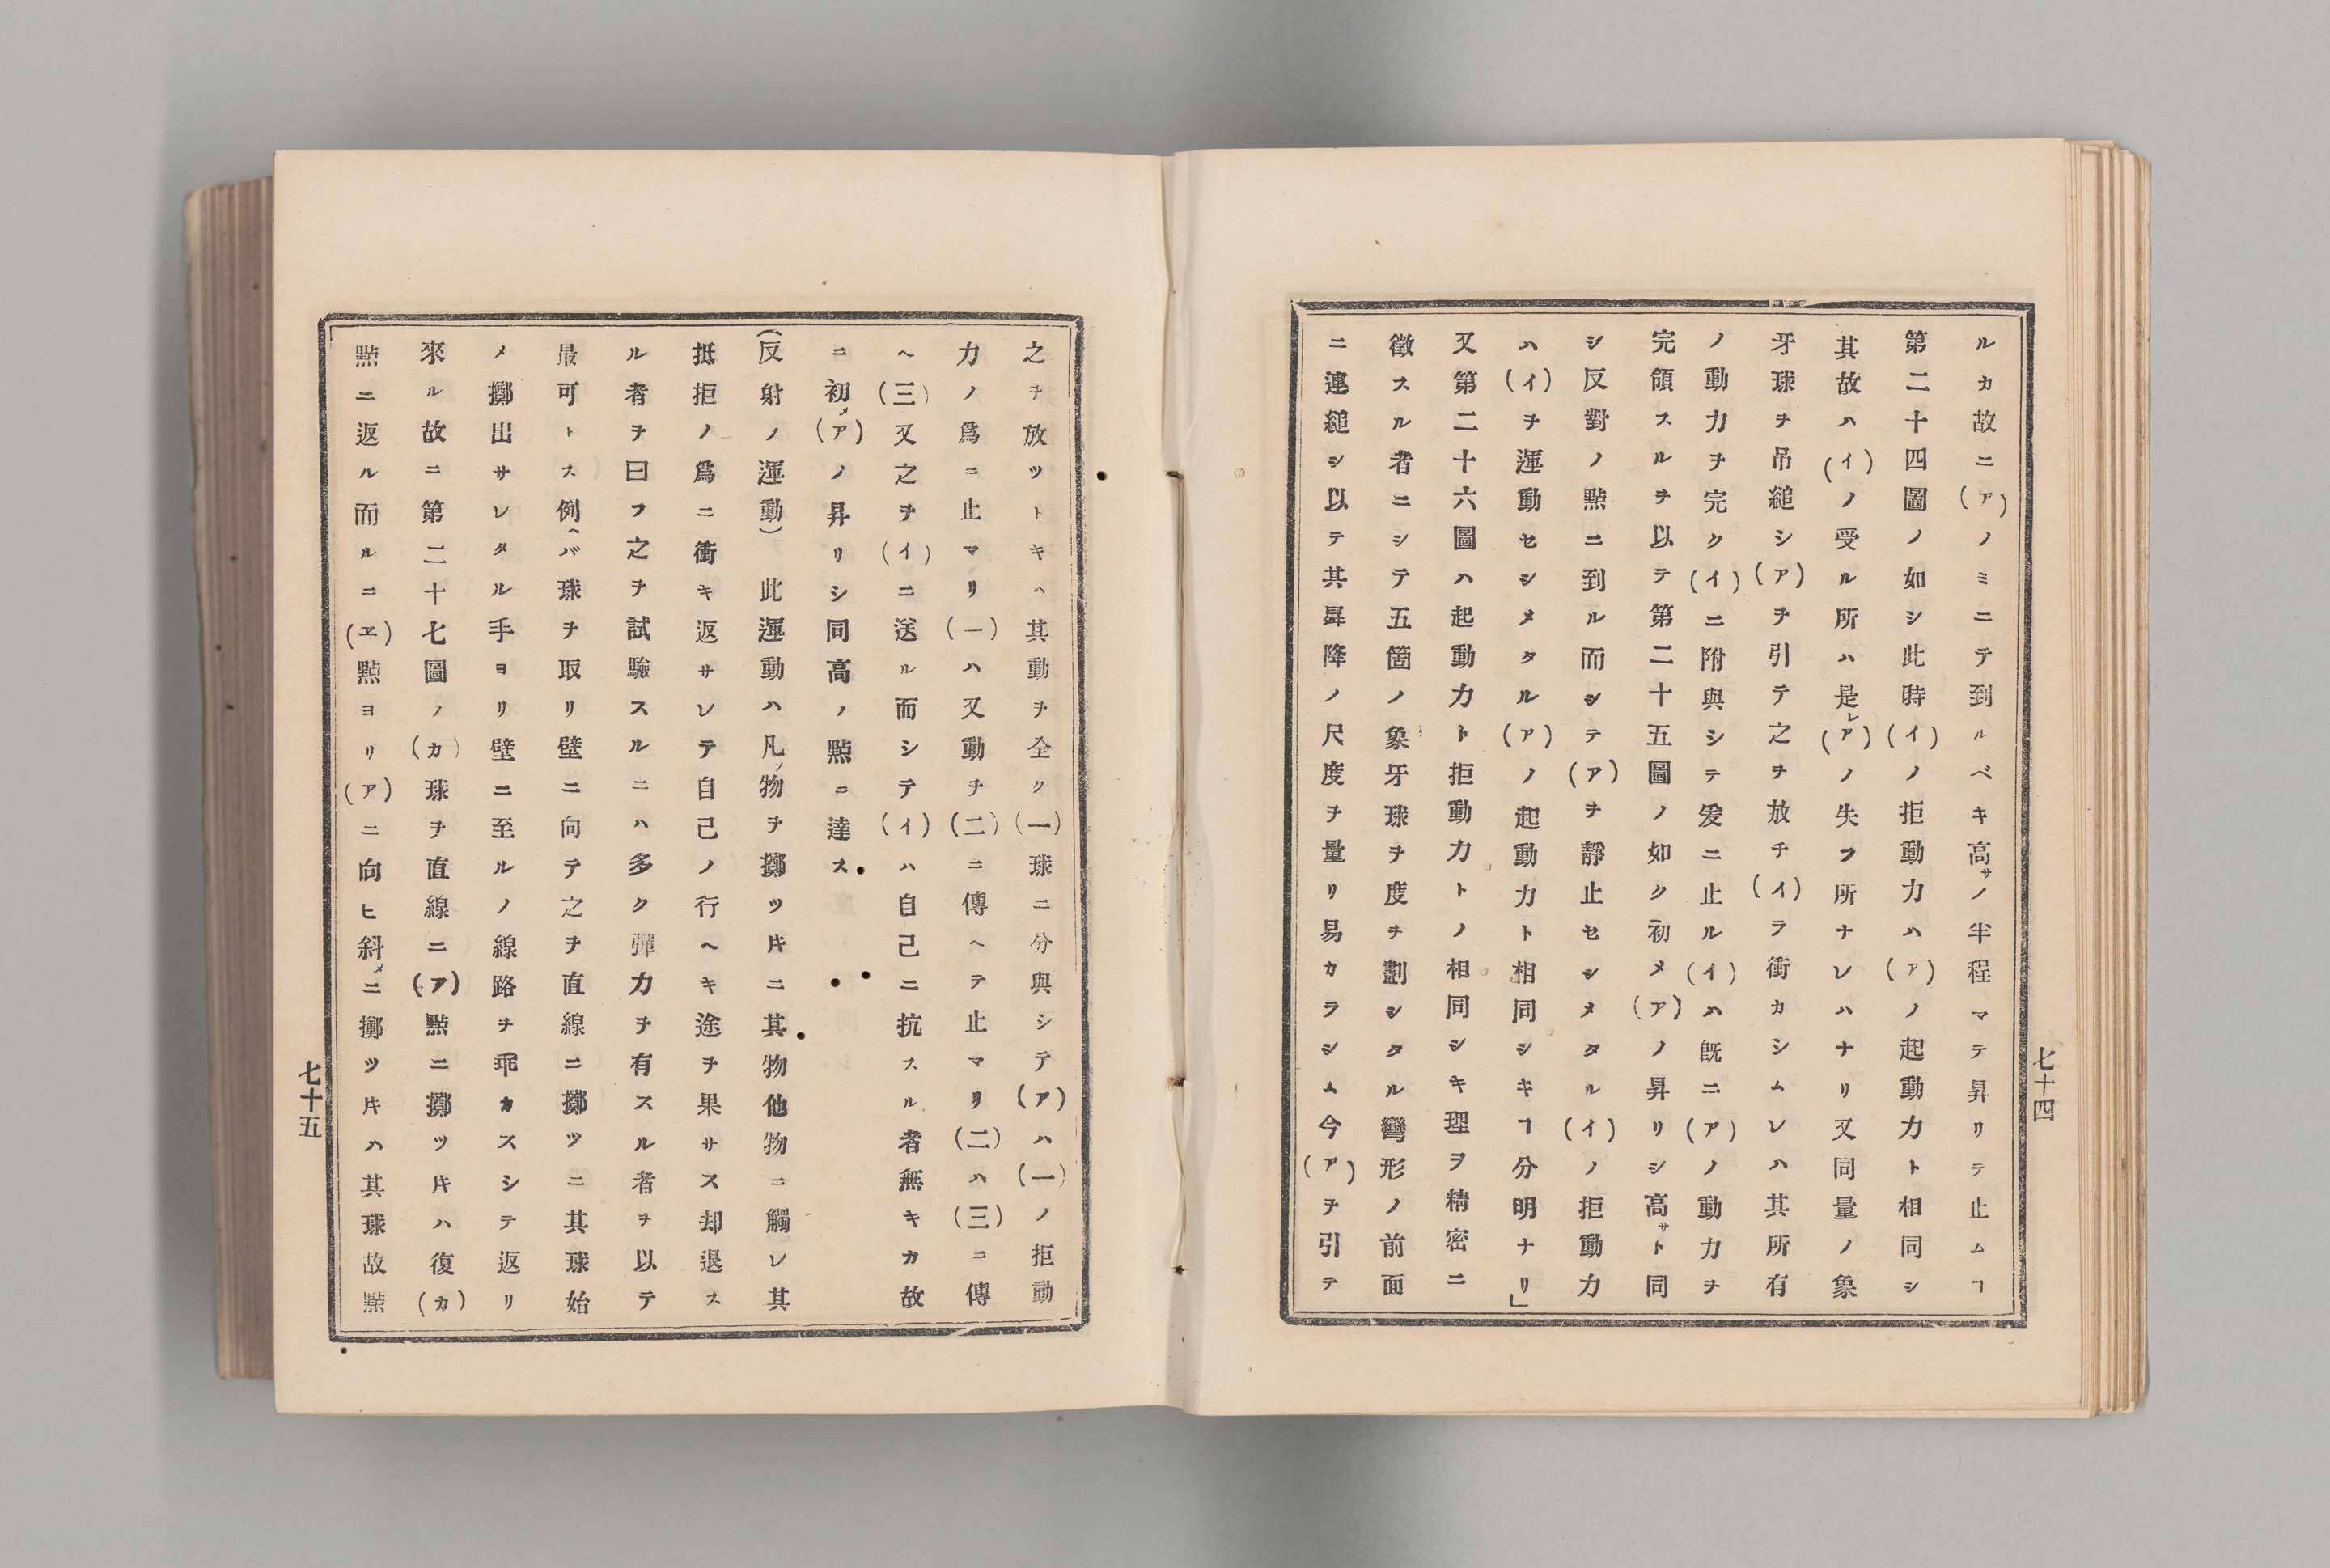 ルカ故ニ(ア)ノミニテ到ルベキ高サノ半程マテ昇リテ止ムヿ
第二十四圖ノ如シ此時(イ)ノ拒動力ハ(ア)ノ起動力ト相同シ
其故ハ(イ)ノ受ル所ハ是レ(ア)ノ失フ所ナレハナリ又同量ノ象
牙球ヲ吊縋シ(ア)ヲ引テ之ヲ放チ(イ)ヲ衝カシムレハ其所有
ノ動力ヲ完ク(イ)ニ附與シテ爰ニ止ル(イ)ハ既ニ(ア)ノ動力ヲ
完領スルヲ以テ第二十五圖ノ如ク初メ(ア)ノ昇リシ高サト同
シ反對ノ點ニ到ル而シテ(ア)ヲ靜止セシメタル(イ)ノ拒動力
ハ(イ)ヲ運動セシメタル(ア)ノ起動力ト相同シキヿ分明ナリ」
又第二十六圖ハ起動力ト拒動力トノ相同シキ理ヲ精密ニ
徵スル者ニシテ五箇ノ象牙球ヲ度ヲ劃シタル彎形ノ前面
ニ連縋シ以テ其昇降ノ尺度ヲ量リ易カラシム今(ア)ヲ引テ
七十四
之ヲ放ツトキハ其動ヲ全ク(一)球ニ分與シテ(ア)ハ(一)ノ拒動
力ノ爲ニ止マリ(一)ハ又動ヲ(二)ニ傳ヘテ止マリ(二)ハ(三)ニ傳
ヘ(三)又之ヲ(イ)ニ送ル而シテ(イ)ハ自己ニ抗スル者無キカ故
ニ初メ(ア)ノ昇リシ同高ノ點ニ達ス
(反射ノ運動) 此運動ハ凡ソ物ヲ擲ツ片ニ其物他物ニ觸レ其
抵拒ノ爲ニ衝キ返サレテ自己ノ行ヘキ途ヲ果サス却退ス
ル者ヲ曰フ之ヲ試驗スルニハ多ク彈力ヲ有スル者ヲ以テ
最可トス例ヘバ球ヲ取リ壁ニ向テ之ヲ直線ニ擲ツニ其球始
メ擲出サレタル手ヨリ壁ニ至ルノ線路ヲ乖カスシテ返リ
來ル故ニ第二十七圖ノ(カ)球ヲ直線ニ(ア)點ニ擲ツ片ハ復(カ)
點ニ返ル而ルニ(ヱ)點ヨリ(ア)ニ向ヒ斜メニ擲ツ片ハ其球故點
七十五